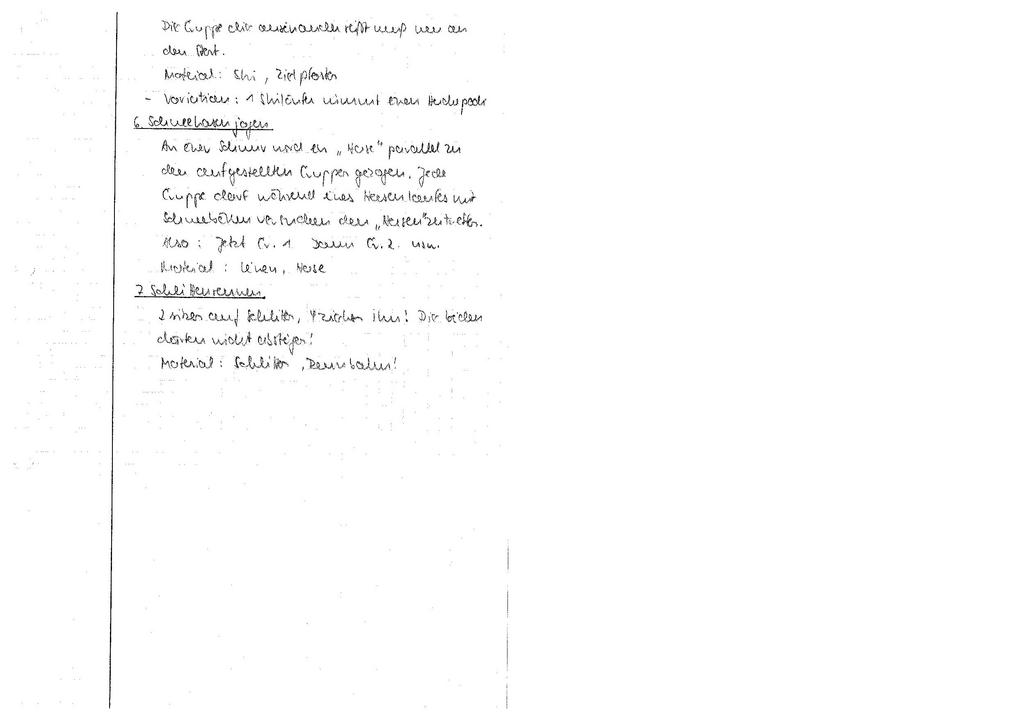 Die Gruppe die auseinander reißt muß neu an
den Start.
Material: Ski, Zielpfosten
- Variation: 1 Skiläufer nimmt einen Huckepack
6. Schneehasen jagen
An einer Schnur wird ein „Hase" parallel zu
den aufgestellten Gruppen gezogen. Jede
Gruppe darf während eines Hasenlaufes mit
Schneebällen versuchen den „Hasen" zu treffen.
Also: Jetzt Gr. 1 Dann Gr. 2. usw.
Material: Leinen, Hase
7. Schlittenrennen
2 sitzen auf Schlitten, 4 ziehen ihn! Die beiden
dürfen nicht absteigen!
Material: Schlitten, Rennbahn!